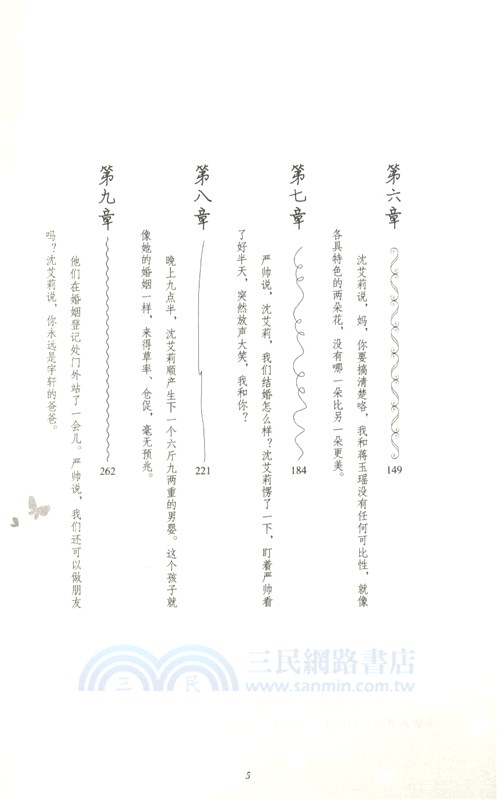 第六章
149
沈艾莉说，妈，你要搞清楚咯，我和蒋玉瑶没有任何可比性，就像
各具特色的两朵花，没有哪一朵比另一朵更美。
第七章
184
严帅说，沈艾莉，我们结婚怎么样？沈艾莉愣了一下，盯着严帅看
了好半天，突然放声大笑，我和你？
第八章
221
晚上九点半，沈艾莉顺产生下一个六斤九两重的男婴。这个孩子就
像她的婚姻一样，来得草率、仓促，毫无预兆。
第九章
262
他们在婚姻登记处门外站了一会儿。严帅说，我们还可以做朋友
吗？沈艾莉说，你永远是宇轩的爸爸。
三民
三民網路書店
www.sanmin.com.tw
5